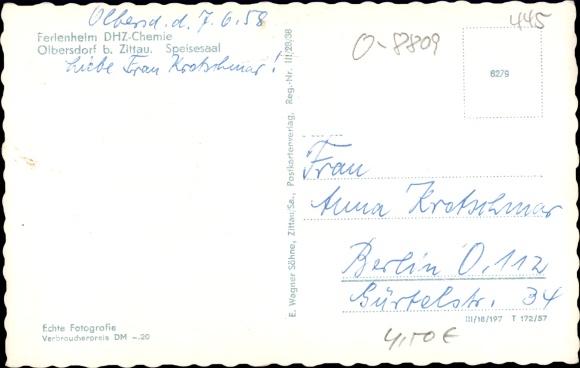 Olbersd. d. 7.6.58
Ferienheim DHZ-Chemie
Olbersdorf b. Zittau. Speisesaal
Liebe Frau Kretschmar!
Echte Fotografie
Verbraucherpreis DM -.20
E. Wagner Söhne, Zittau/Sa., Postkartenverlag, Reg.-Nr. III/28/38
445
O-8809
6279
Frau
Anna Kretschmar
Berlin O.112
Gürtelstr. 34
III/18/197 T 172/57
4,50 €